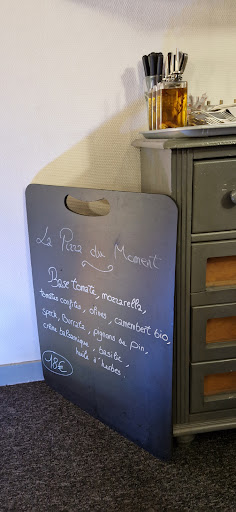 La Pizza du Moment
Base tomate, mozzarella,
tomates confites, olives, camembert bio,
speck, Burrata, pignons de pin,
crème balsamique, basilic,
huile d'herbes.
18€